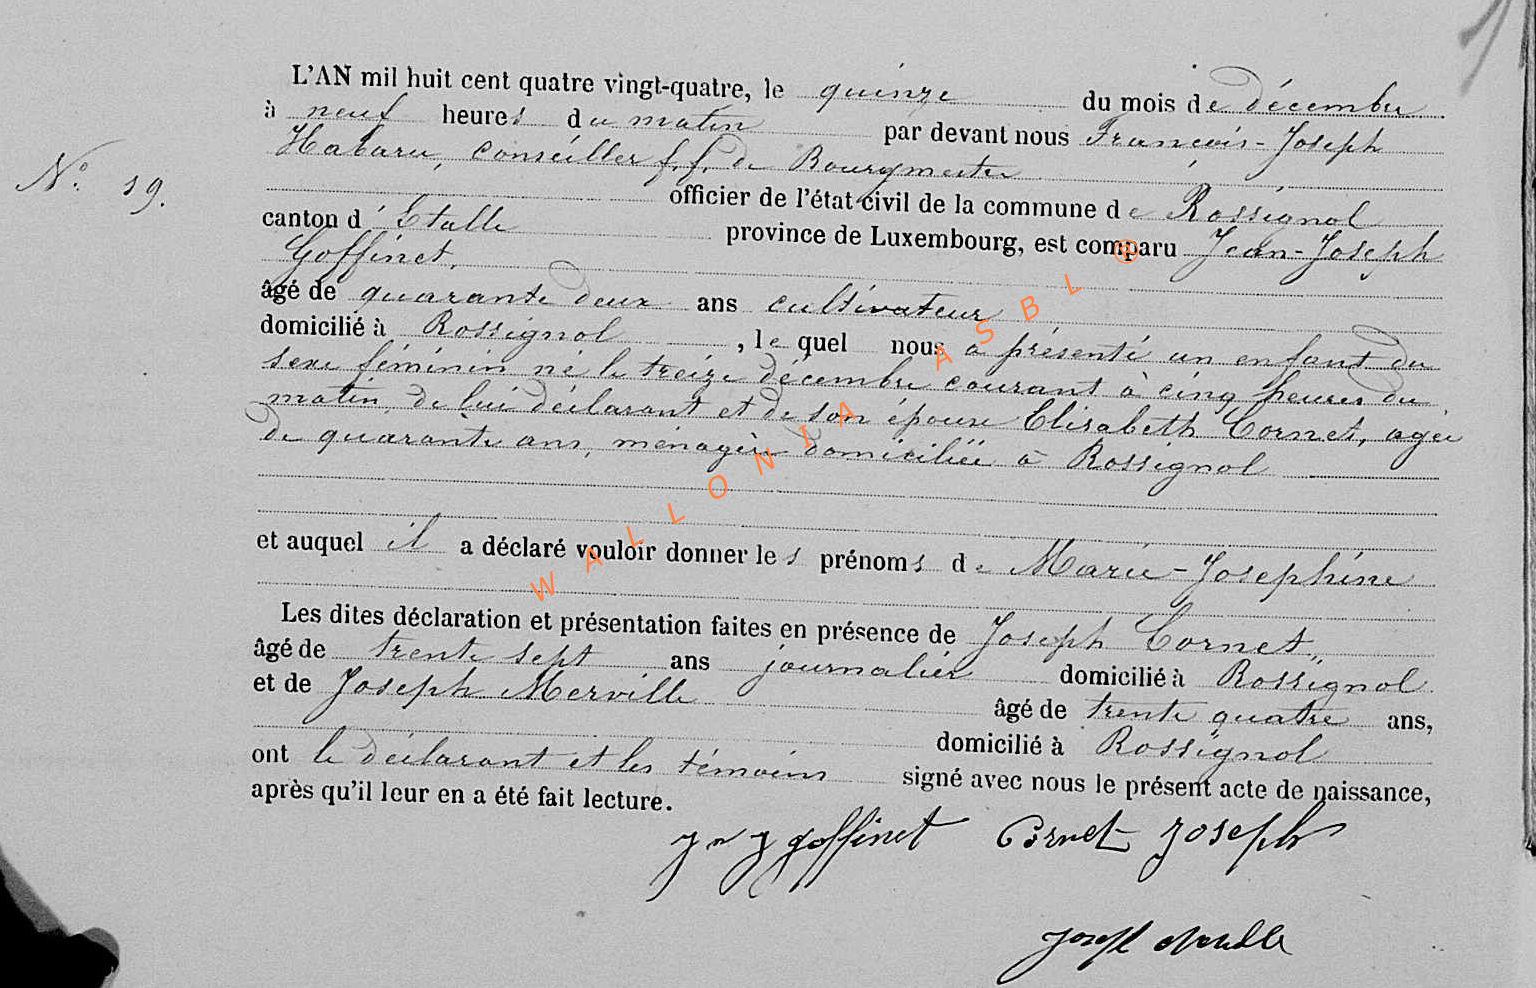 L'AN mil huit cent quatre vingt-quatre, le quinze du mois de décembre
à neuf heures du matin par devant nous François-Joseph
Habaru, conseiller f.f. de Bourgmestre
officier de l'état civil de la commune de Rossignol
canton d'Etalle province de Luxembourg, est comparu Jean-Joseph
Goffinet,
âgé de quarante deux ans cultivateur
domicilié à Rossignol, le quel nous a présenté un enfant du
sexe féminin né le treize décembre courant à cinq heures du
matin, de lui déclarant et de son épouse Elisabeth Cornet, agée
de quarante ans, ménagère domiciliée à Rossignol
et auquel il a déclaré vouloir donner les prénoms de Marie-Josephine
Les dites déclaration et présentation faites en présence de Joseph Cornet,
âgé de trente sept ans journalier domicilié à Rossignol
et de Joseph Merville âgé de trente quatre ans,
domicilié à Rossignol
ont le déclarant et les témoins signé avec nous le présent acte de naissance,
après qu'il leur en a été fait lecture.
N° 19.
goffinet Cornet Joseph
Joseph
WALLONIA ASBL ®